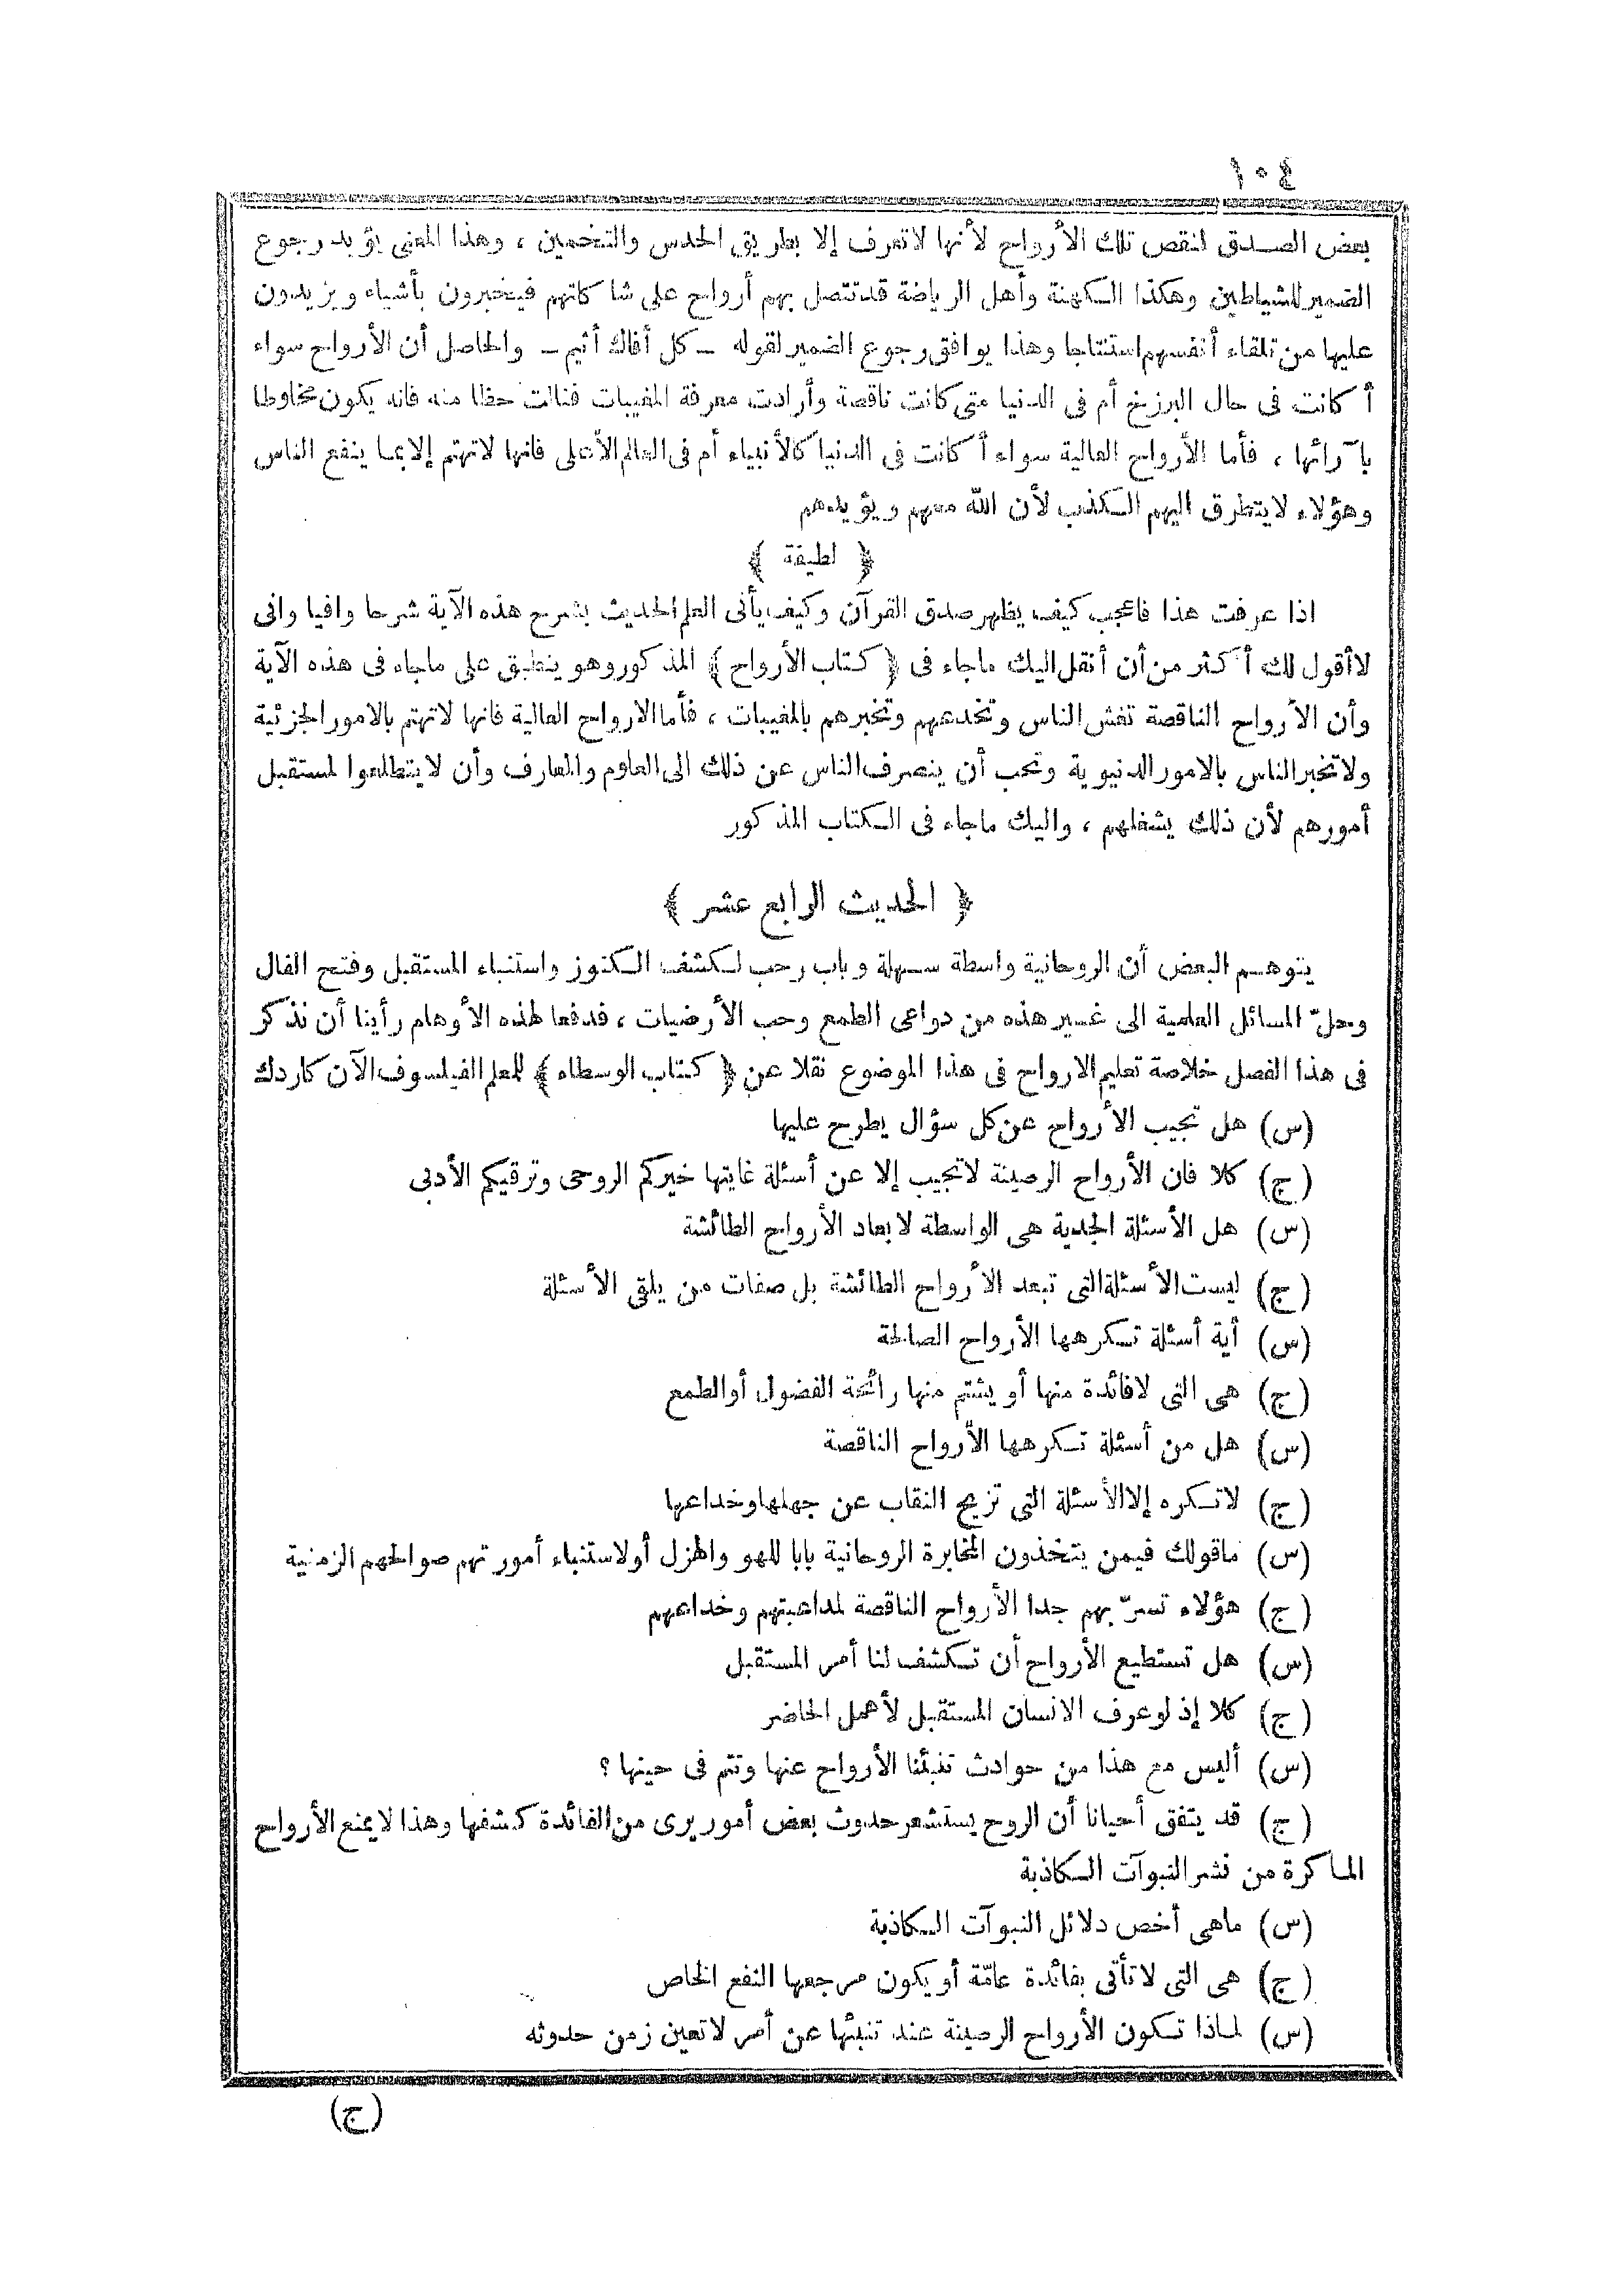 ١٠٤
بعض الصدق لنقص تلك الأرواح لأنها لاتعرف إلا بطريق الحدس والتخمين ، وهذا المعنى يؤيد رجوع
الضمير للشياطين وهكذا الكهنة وأهل الرياضة قد تتصل بهم أرواح على شاكلتهم فيخبرون بأشياء ويزيدون
عليها من تلقاء أنفسهم استنتاجا وهذا يوافق رجوع الضمير لقوله ــ كل أفاك أثيم ــ والحاصل أن الأرواح سواء
أكانت فى حال البرزخ أم فى الدنيا متى كانت ناقصة وأرادت معرفة المغيبات فنالت حظا منه فانه يكون مخلوطا
بآرائها ، فأما الأرواح العالية سواء أكانت فى الدنيا كالأنبياء أم فى العالم الأعلى فانها لاتهتم إلا بما ينفع الناس
وهؤلاء لايتطرق اليهم الكذب لأن الله معهم ويؤيدهم
﴿ لطيفة ﴾
اذا عرفت هذا فاعجب كيف يظهر صدق القرآن وكيف يأتى العلم الحديث بشرح هذه الآية شرحا وافيا وانى
لاأقول لك أكثر من أن أنقل اليك ماجاء فى ﴿ كتاب الأرواح ﴾ المذكور وهو ينطبق على ماجاء فى هذه الآية
وأن الأرواح الناقصة تغش الناس وتخدعهم وتخبرهم بالمغيبات ، فأما الارواح العالية فانها لاتهتم بالامور الجزئية
ولاتخبر الناس بالامور الدنيوية وتحب أن ينصرف الناس عن ذلك الى العلوم والمعارف وأن لايتطلعوا لمستقبل
أمورهم لأن ذلك يشغلهم ، واليك ماجاء فى الكتاب المذكور
﴿ الحديث الرابع عشر ﴾
يتوهم البعض أن الروحانية واسطة سهلة وباب رحب لكشف الكنوز واستنباء المستقبل وفتح الفال
وحلّ المسائل العلمية الى غير هذه من دواعى الطمع وحب الأرضيات ، فدفعا لهذه الأوهام رأينا أن نذكر
فى هذا الفصل خلاصة تعليم الارواح فى هذا الموضوع نقلا عن ﴿ كتاب الوسطاء ﴾ للمعلم الفيلسوف الآن كاردك
(س) هل تجيب الأرواح عن كل سؤال يطرح عليها
(ج) كلا فان الأرواح الرصينة لاتجيب إلا عن أسئلة غايتها خيركم الروحى وترقيكم الأدبى
(س) هل الأسئلة الجدية هى الواسطة لابعاد الأرواح الطائشة
(ج) ليست الأسئلة التى تبعد الأرواح الطائشة بل صفات من يلقى الأسئلة
(س) أية أسئلة تكرهها الأرواح الصالحة
(ج) هى التى لافائدة منها أو يشتم منها رائحة الفضول أوالطمع
(س) هل من أسئلة تكرهها الأرواح الناقصة
(ج) لاتكره إلا الأسئلة التى تزيح النقاب عن جهلها وخداعها
(س) ماقولك فيمن يتخذون المخابرة الروحانية بابا للهو والهزل أولاستنباء أمور تهم صوالحهم الزمنية
(ج) هؤلاء تسرّ بهم جدا الأرواح الناقصة لمداعبتهم وخداعهم
(س) هل تستطيع الأرواح أن تكشف لنا أمر المستقبل
(ج) كلا إذ لو عرف الانسان المستقبل لأهمل الحاضر
(س) أليس مع هذا من حوادث تنبئنا الأرواح عنها وتتم فى حينها ؟
(ج) قد يتفق أحيانا أن الروح يستشعر حدوث بعض أمور يرى من الفائدة كشفها وهذا لايمنع الأرواح
الماكرة من نشر النبوآت الكاذبة
(س) ماهى أخص دلائل النبوآت الكاذبة
(ج) هى التى لاتأتى بفائدة عامّة أو يكون مرجعها النفع الخاص
(س) لماذا تكون الأرواح الرصينة عند تنبئها عن أمر لاتعين زمن حدوثه
(ج)